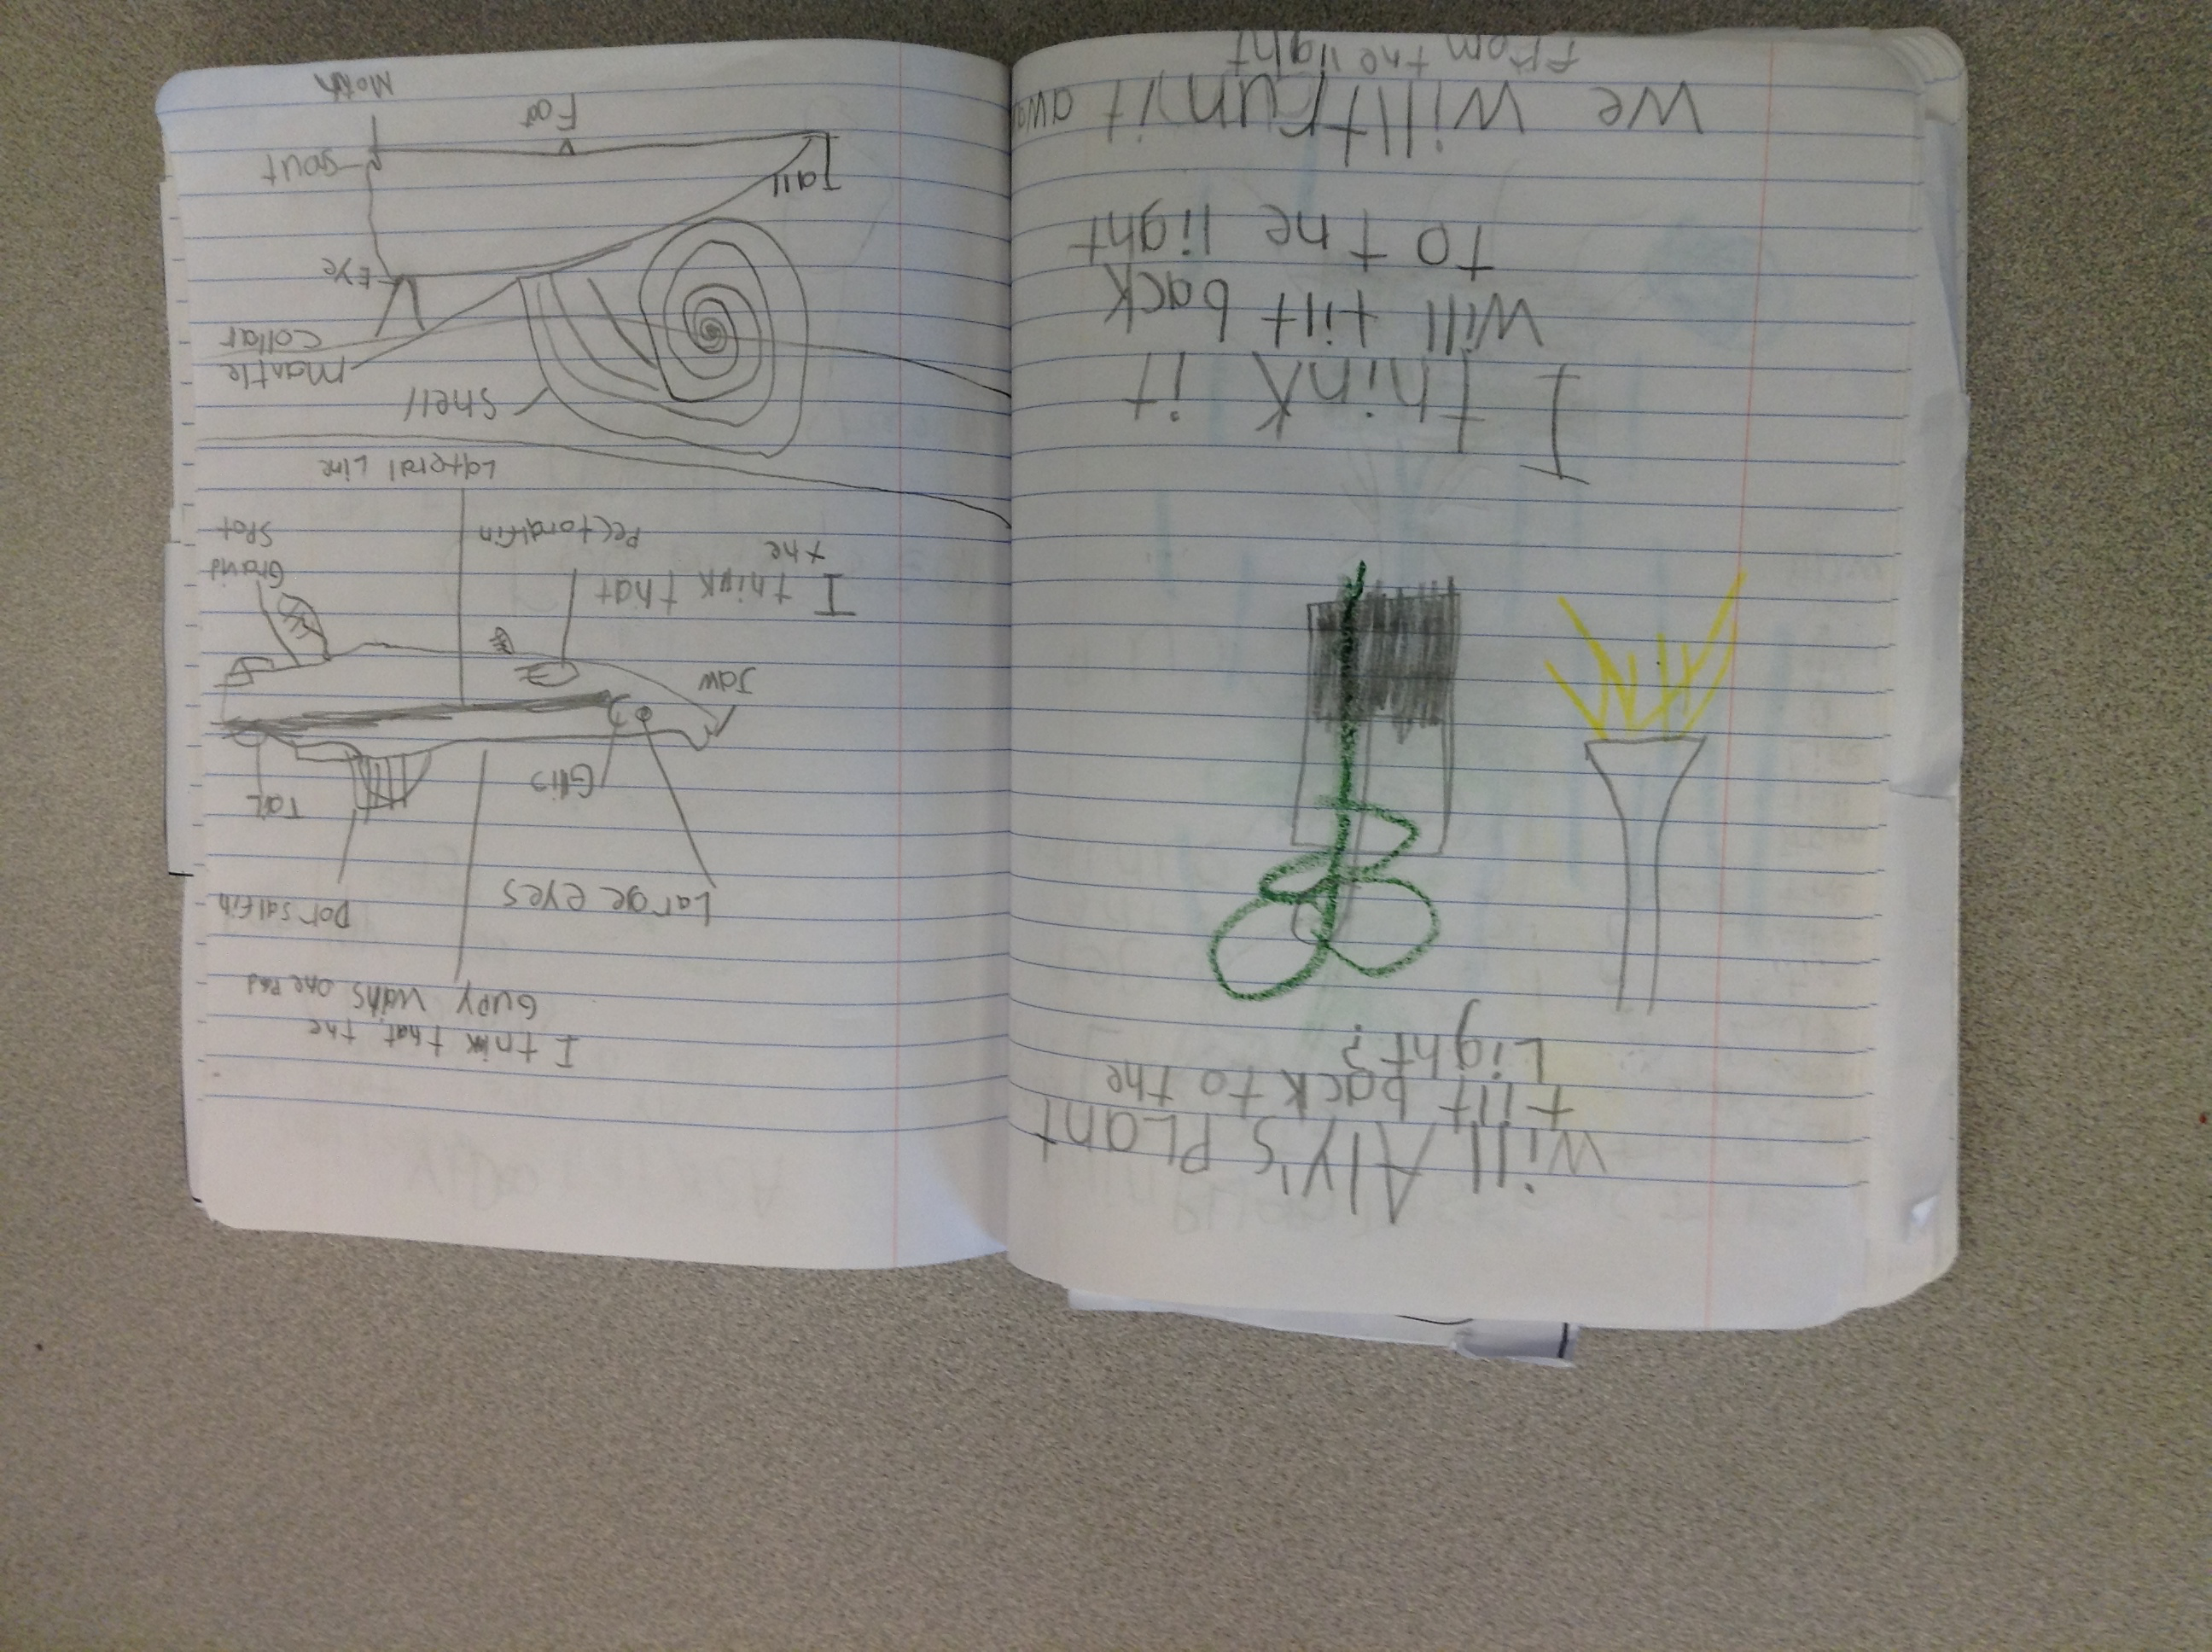 Will Aly's PLant
tilt back to the
Light?
I think it
will tilt back
to the light
We will trunit awa
from the light
I think that, the
Gupy one
Large eyes
Dorsalfin
Gills
Tail
Jaw
I think that
the
Pectoralfin
Gravid
Spot
Lateral Line
Shell
Mantle
Collar
Eye
Tail
Sout
Foot
Moth